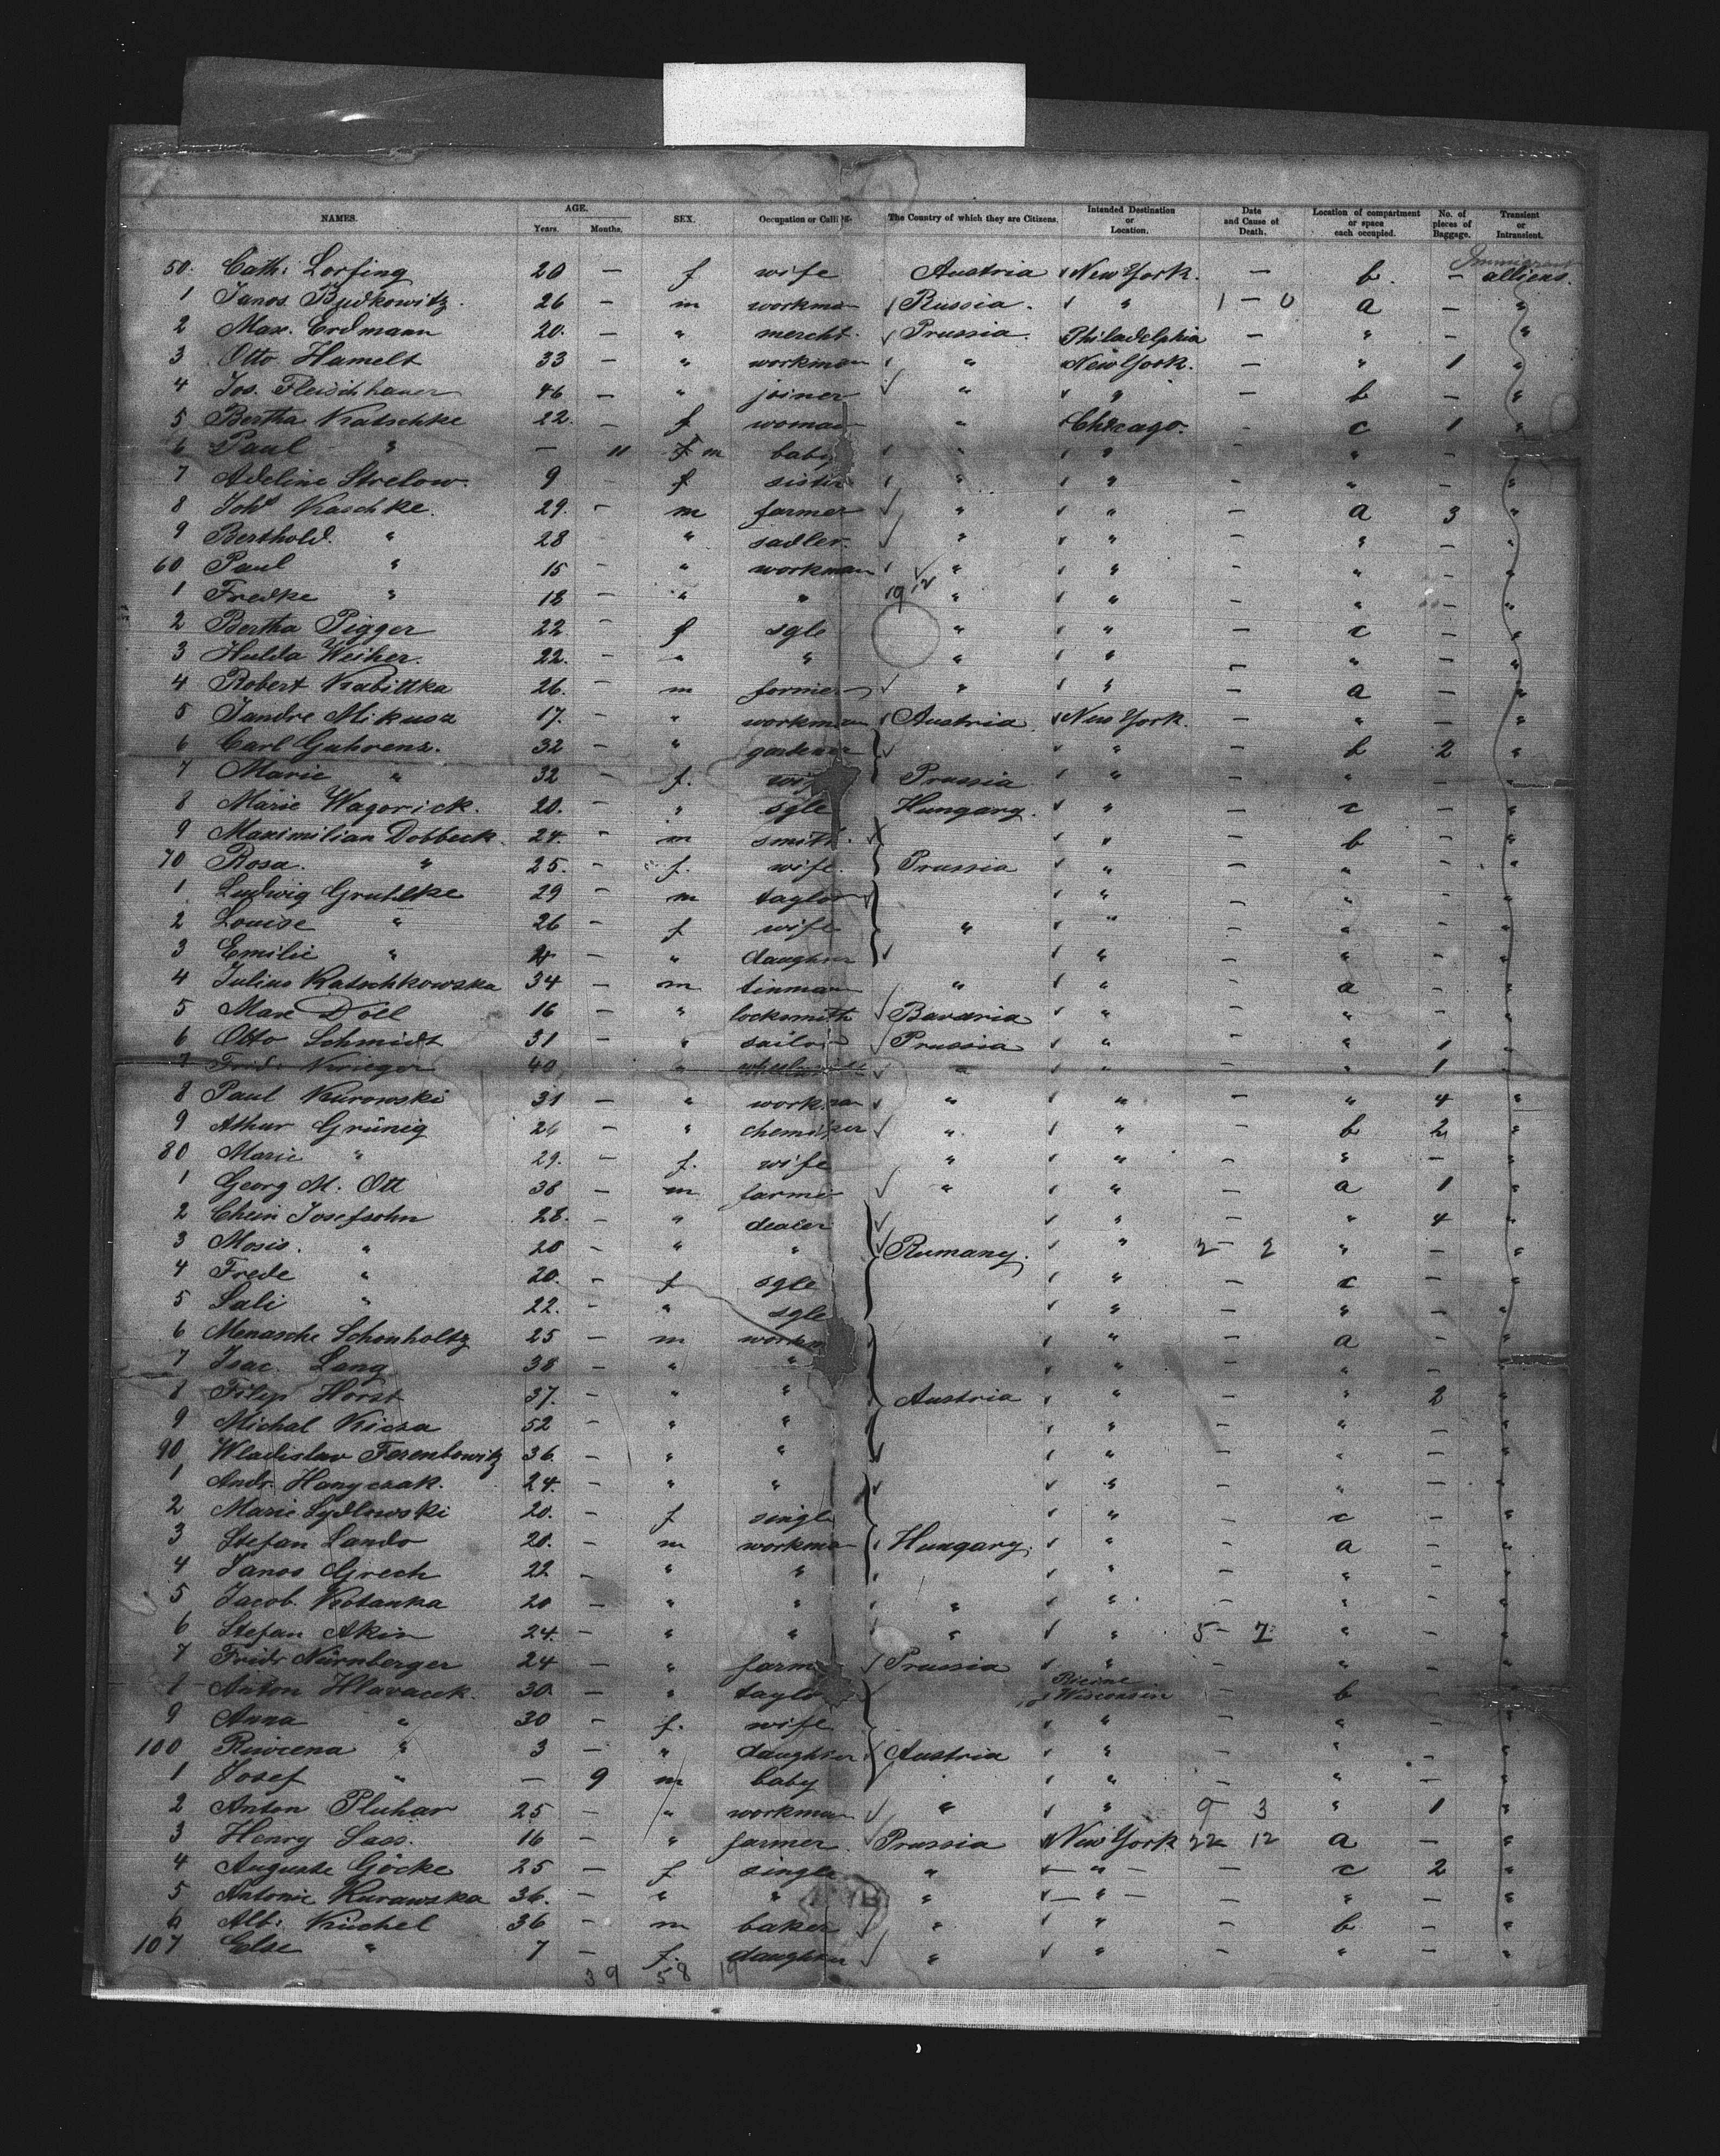 NAMES. AGE. Years. Months. SEX. Occupation or Calling. The Country of which they are Citizens. Intended Destination or Location. Date and Cause of Death. Location of compartment or space each occupied. No. of pieces of Baggage. Transient or Intransient.
Immigrant
50. Cath: Lorfing 20 — f wife Austria New York. — b. — alliens.
1 Janos Budkowitz. 26 — m workman Russia. " 1 — 0 a — "
2 Max. Erdmann 20. — " mercht. Prussia. Philadelphia — " — "
3 Otto Hamelt 33 — " workman " New York. — " 1 "
4 Jos. Fleischhauer 46 — " joiner " " — b — "
5 Bertha Katschke 22. — f woman " Chicago. — c 1 "
6 Paul " — 11 f m baby " " " — "
7 Adeline Strelow. 9 — f sister " " — " — "
8 Joh Kaschke. 29. — m farmer " " — a 3 "
9 Berthold. " 28 — " sadler. " " — " — "
60 Paul " 15 — " workman " " — " — "
1 Fredke " 18 — " " " " — " — "
2 Bertha Pigger 22 — f sgle " " — c — "
3 Hulda Weiher. 22. — " " " " — " — "
4 Robert Kabittka 26. — m former " " — a — "
5 Jandre Mikusa 17. — " workman Austria New York. — " — "
6 Carl Guhrenz. 32 — " gardener " — b 2 "
7 Marie " 32 — f. wife Prussia " — " — "
8 Marie Wagorick. 20. — " sgle Hungary. " — c — "
9 Maximilian Dobbeck. 24. — m smith. " — b — "
70 Rosa. " 25. — f. wife. Prussia " — " — "
1 Ludwig Gruhlke 29 — m taylor " — " — "
2 Louise " 26 — f wife " " — " — "
3 Emilie " 4 — " daughter " — " — "
4 Julius Katschkowska 34 — m tinman " " — a — "
5 Max Doll 16 — " locksmith Bavaria " — " — "
6 Otto Schmidt 31 — " sailor Prussia " — " 1 "
7 Fridr Krieger 40 " " " — " 1
8 Paul Kurowski 31 — " workman " " — " 4 "
9 Athur Grünig 26 — " " " — b 2 "
80 Marie " 29. — f. wife " " — " — "
1 Georg M. Ott 38 — m farmer " " — a 1 "
2 Chein Josefsohn 28. — " dealer " — " 4 "
3 Mosis. " 20 — " " Rumany. " 2 — 2 " — "
4 Frede " 20. — f sgle " — c — "
5 Sali " 22. — " sgle " — " — "
6 Menasche Schonholtz 25 — m workman " — a — "
7 Isac. Lang 38 — " " " — " — "
8 Filip Horst 37. — " " Austria " — " 2 "
9 Michal Kicsa 52 — " " " — " — "
90 Wladislaw Ferentowitz 36. — " " " — " — "
1 Andr. Hanyczak. 24. — " " " — " — "
2 Marie Sydlowski 20. — f single " — c — "
3 Stefan Lando 20. — m workman Hungary. " — a — "
4 Janos Grech 22 — " " " — " — "
5 Jacob. Kotanka 20 — " " " " — " — "
6 Stefan Akin 24. — " " " " 5 — 7 " — "
7 Fridr Nürnberger 24 — " farmer Prussia " — " — "
8 Anton Hlavacek. 30. — " taylor Wisconsin — b — "
9 Anna " 30 — f. wife " — " — "
100 " 3 — " daughter Austria " — " — "
1 Josef " — 9 m baby " — " — "
2 Anton Pluhar 25. — " workman " " 9 3 " 1 "
3 Henry Sass. 16 — " farmer. Prussia New York 22 12 a — "
4 Auguste Göcke 25 — f single " " — c 2 "
5 Antonie Kurawska 36. — " " " " — " — "
6 Alb: Küchel 36 — m baker " " — b — "
107 Else " 7 — f. daughter " " — " — "
39 58 19